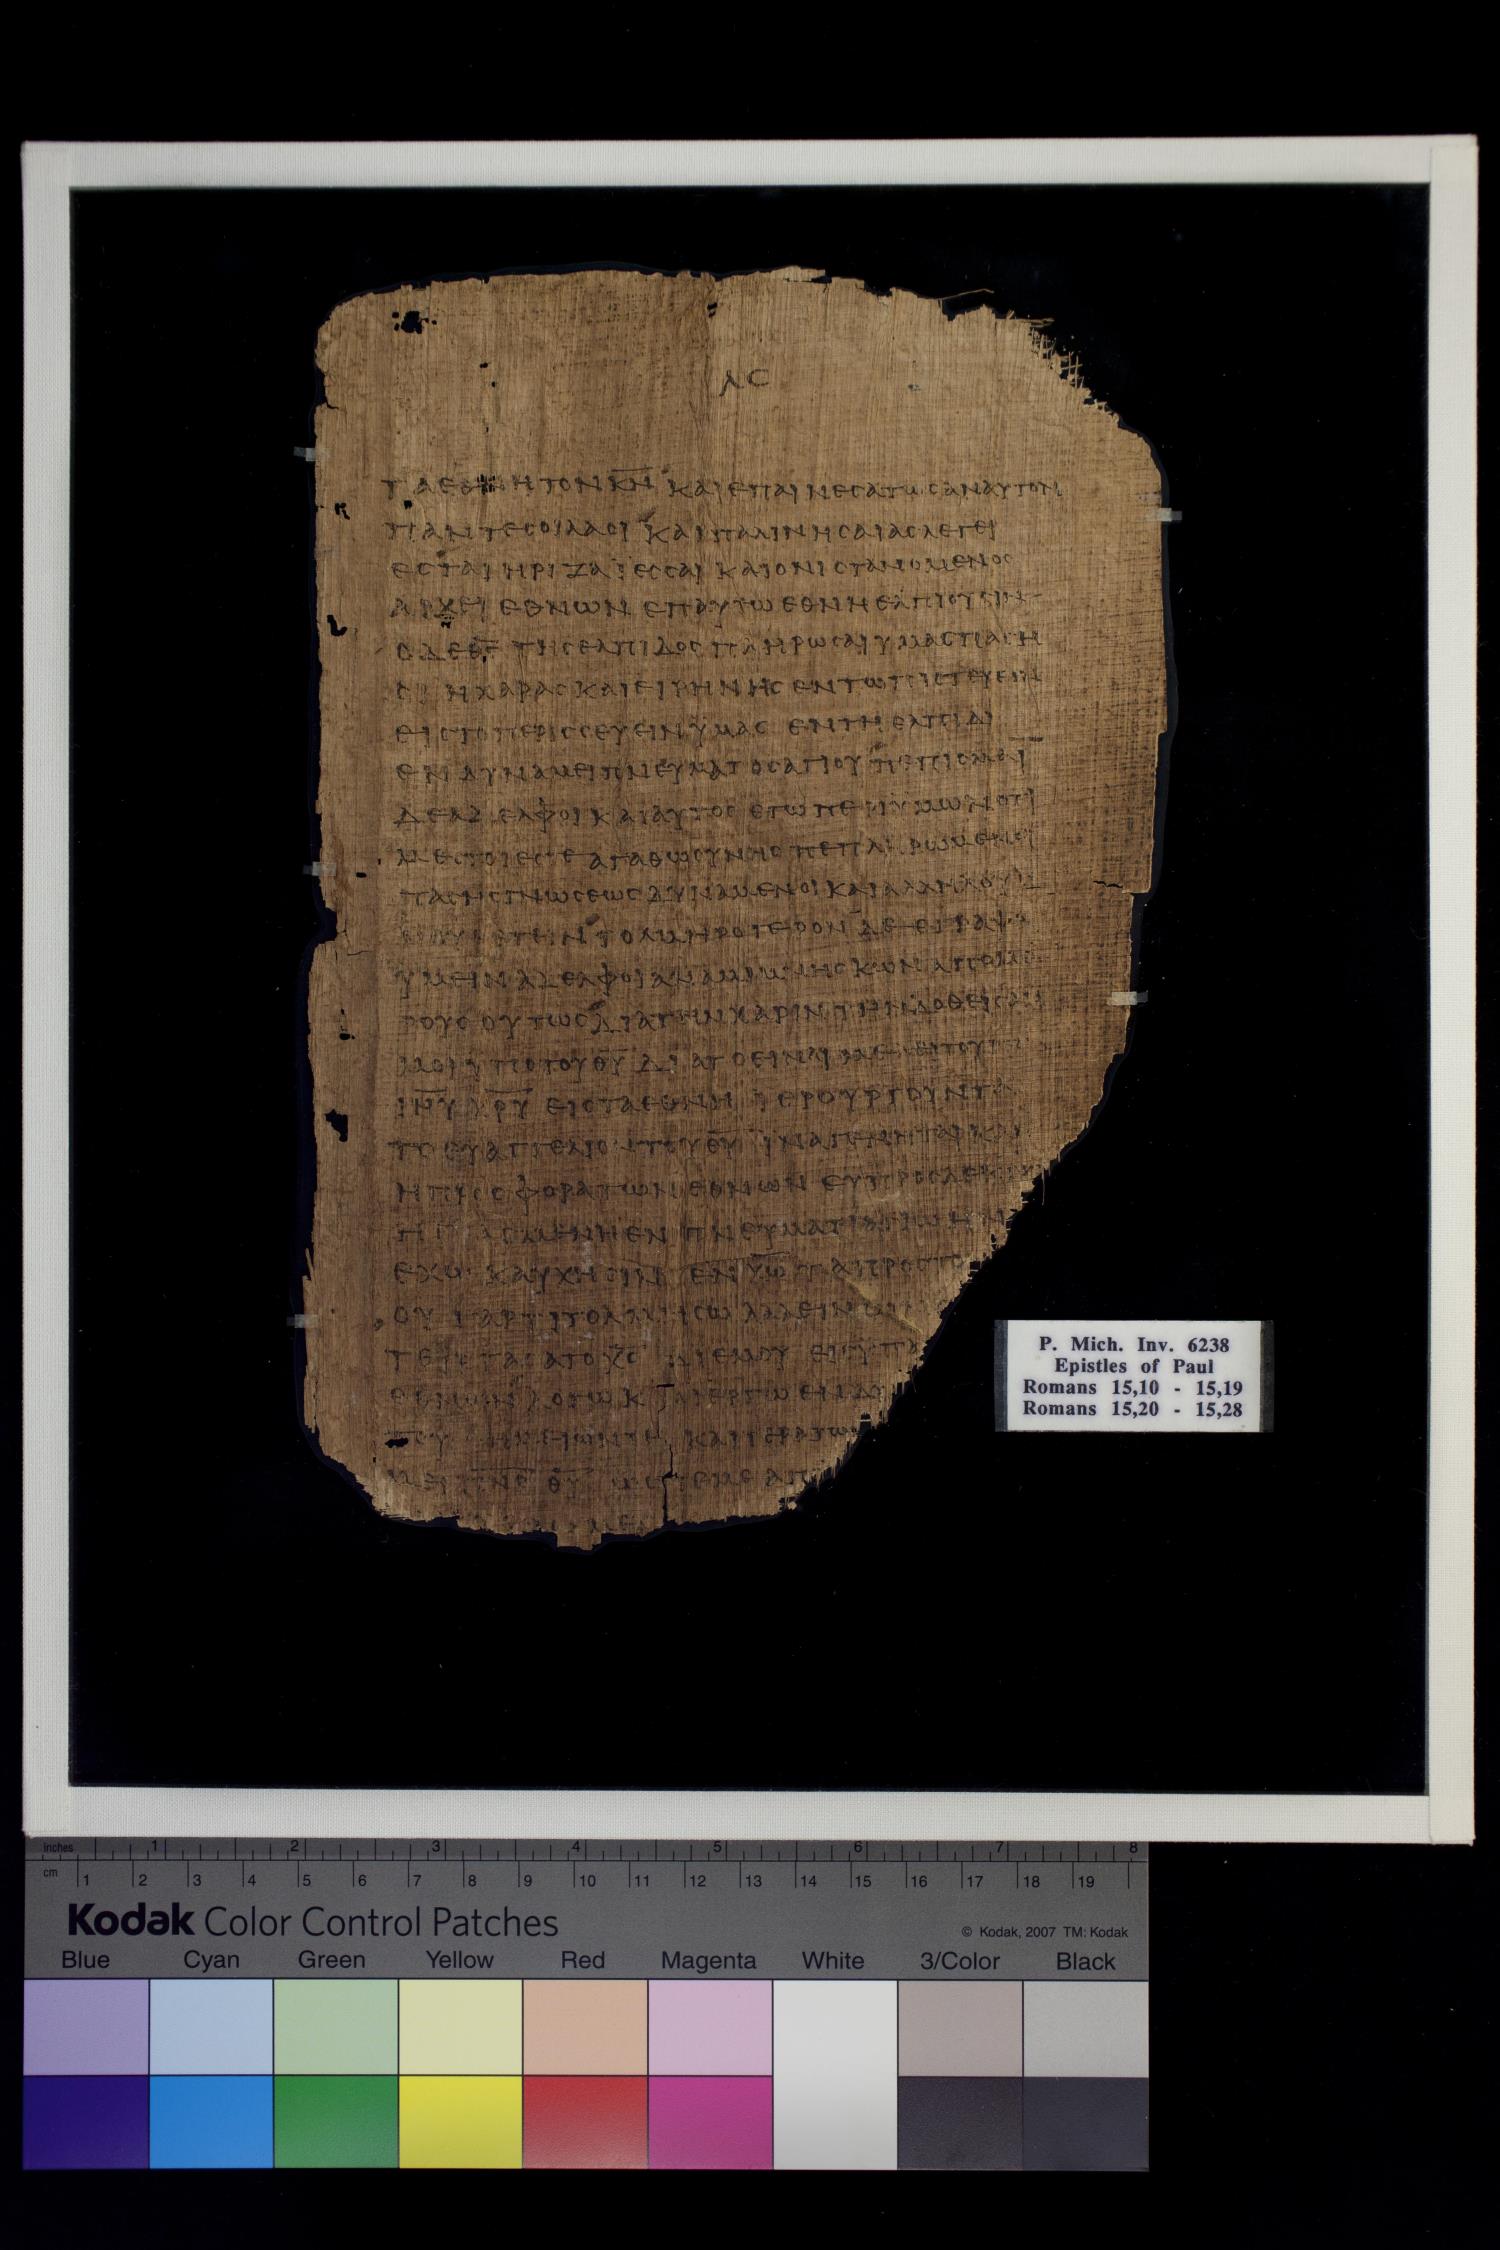 ΛϹ
ΤΑ ΕΘΝΗ ΤΟΝ Κ̅Ν̅ ΚΑΙ ΕΠΑΙΝΕϹΑΤΩϹΑΝ ΑΥΤΟΝ
ΠΑΝΤΕϹ ΟΙ ΛΑΟΙ ΚΑΙ ΠΑΛΙΝ ΗϹΑΙΑϹ ΛΕΓΕΙ
ΕϹΤΑΙ Η ΡΙΖΑ ΪΕϹϹΑΙ ΚΑΙ Ο ΝΙϹΤΑΝΟΜΕΝΟϹ
ΑΡΧΕΙ ΕΘΝΩΝ ΕΠ ΑΥΤΩ ΕΘΝΗ ΕΛΠΙΟΥϹΙΝ
Ο ΔΕ Θ̅Ϲ̅ ΤΗϹ ΕΛΠΙΔΟϹ ΠΛΗΡΩϹΑΙ ΥΜΑϹ ΠΑϹΗ
ΧΑΡΑϹ ΚΑΙ ΕΙΡΗΝΗϹ ΕΝ ΤΩ ΠΙϹΤΕΥΕΙΝ
ΕΙϹ ΤΟ ΠΕΡΙϹϹΕΥΕΙΝ ΫΜΑϹ ΕΝ ΤΗ ΕΛΠΙΔΙ
ΕΝ ΔΥΝΑΜΕΙ ΠΝΕΥΜΑΤΟϹ ΑΓΙΟΥ ΠΕΠΙϹΜΑΙ
ΔΕ ΑΔΕΛΦΟΙ ΚΑΙ ΑΥΤΟϹ ΕΓΩ ΠΕΡΙ ΥΜΩΝ ΟΤΙ
ΜΕϹΤΟΙ ΕϹΤΕ ΑΓΑΘΩϹΥΝΗϹ ΠΕΠΛΗΡΩΜΕΝΟΙ
ΠΑϹΗϹ ΓΝΩϹΕΩϹ ΔΥΝΑΜΕΝΟΙ ΚΑΙ ΑΛΛΗΛΟΥϹ
ΤΟΛΜΗΡΟΤΕΡΟΝ ΔΕ ΕΓΡΑΨΑ
ΥΜΕΙΝ ΑΔΕΛΦΟΙ ΑΝΑΜΙΜΝΗϹΚΩΝ ΑΠΟ ΜΕ
ΡΟΥϹ ΟΥΤΩϹ ΔΙΑ ΤΗΝ ΧΑΡΙΝ ΤΗΝ ΔΟΘΕΙϹΑΝ
ΜΟΙ ΥΠΟ ΤΟΥ Θ̅Υ̅ ΔΙΑ ΤΟ ΕΙΝΑΙ ΜΕ
Ι̅Η̅Υ̅ Χ̅Ρ̅Υ̅ ΕΙϹ ΤΑ ΕΘΝΗ ΪΕΡΟΥΡΓΟΥΝΤΑ
ΤΟ ΕΥΑΓΓΕΛΙΟΝ ΤΟΥ Θ̅Υ̅ ΪΝΑ ΓΕΝΗΤΑΙ ΚΑΙ
Η ΠΡΟϹΦΟΡΑ ΤΩΝ ΕΘΝΩΝ ΕΥΠΡΟϹΔΕΚ
ΕΝ ΠΝΕΥΜΑΤΙ ΑΓΙΩ ΗΝ
ΕΧΩ ΚΑΥΧΗϹΙΝ ΕΝ Χ̅Ρ̅Ω̅ ΤΑ ΠΡΟϹ ΤΟ
ΟΥ ΓΑΡ ΤΙ ΤΟΛΜΗϹΩ ΛΑΛΕΙΝ ΩΝ
Χ̅Ρ̅Ϲ̅ ΔΙ ΕΜΟΥ ΕΙϹ ΥΠΑ
ΕΘΝΩΝ ΛΟΓΩ ΚΑΙ ΕΡΓΩ ΕΝ ΔΥ
ϹΗΜΕΙΩΝ ΤΕ ΚΑΙ ΤΕΡΑΤΩΝ
Θ̅Υ̅ ΩϹΤΕ ΜΕ ΑΠΟ
P. Mich. Inv. 6238
Epistles of Paul
Romans 15,10 - 15,19
Romans 15,20 - 15,28
inches 1 2 3 4 5 6 7 8
cm 1 2 3 4 5 6 7 8 9 10 11 12 13 14 15 16 17 18 19
Kodak Color Control Patches
© Kodak, 2007 TM: Kodak
Blue Cyan Green Yellow Red Magenta White 3/Color Black